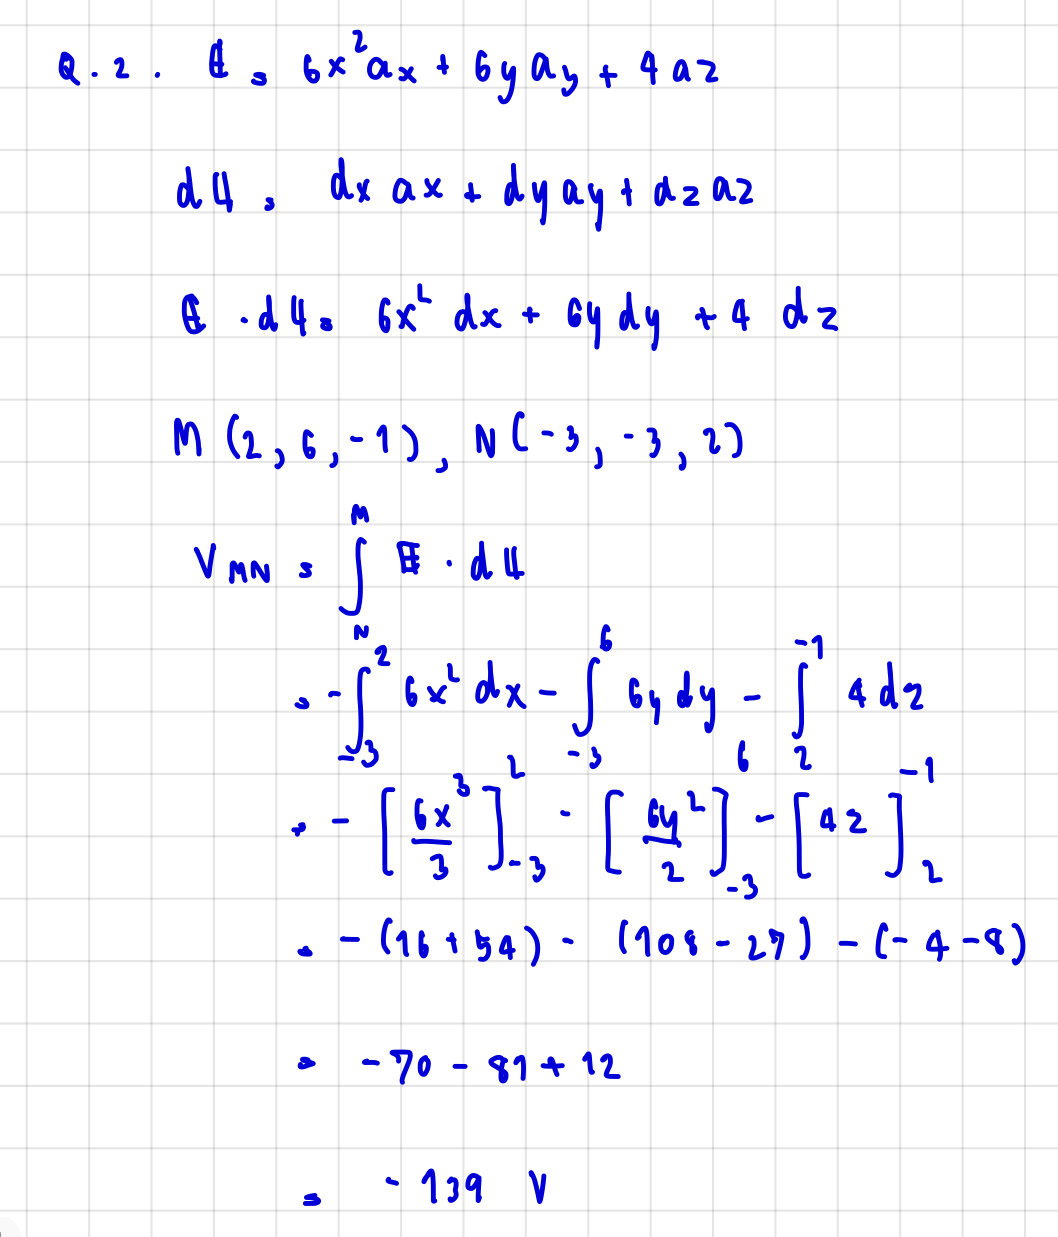 Q.2. E = 6x²ax + 6y ay + 4 az
dL = dx ax + dy ay + dz az
E · dL = 6x² dx + 6y dy + 4 dz
M (2, 6, -1), N (-3, -3, 2)
V_MN = ∫_N^M E · dL
= -∫_{-3}^{2} 6x² dx - ∫_{-3}^{6} 6y dy - ∫_{2}^{-1} 4 dz
= - [6x³/3]_{-3}^{2} - [6y²/2]_{-3}^{6} - [4z]_{2}^{-1}
= - (16 + 54) - (108 - 27) - (-4 - 8)
= -70 - 81 + 12
= -139 V